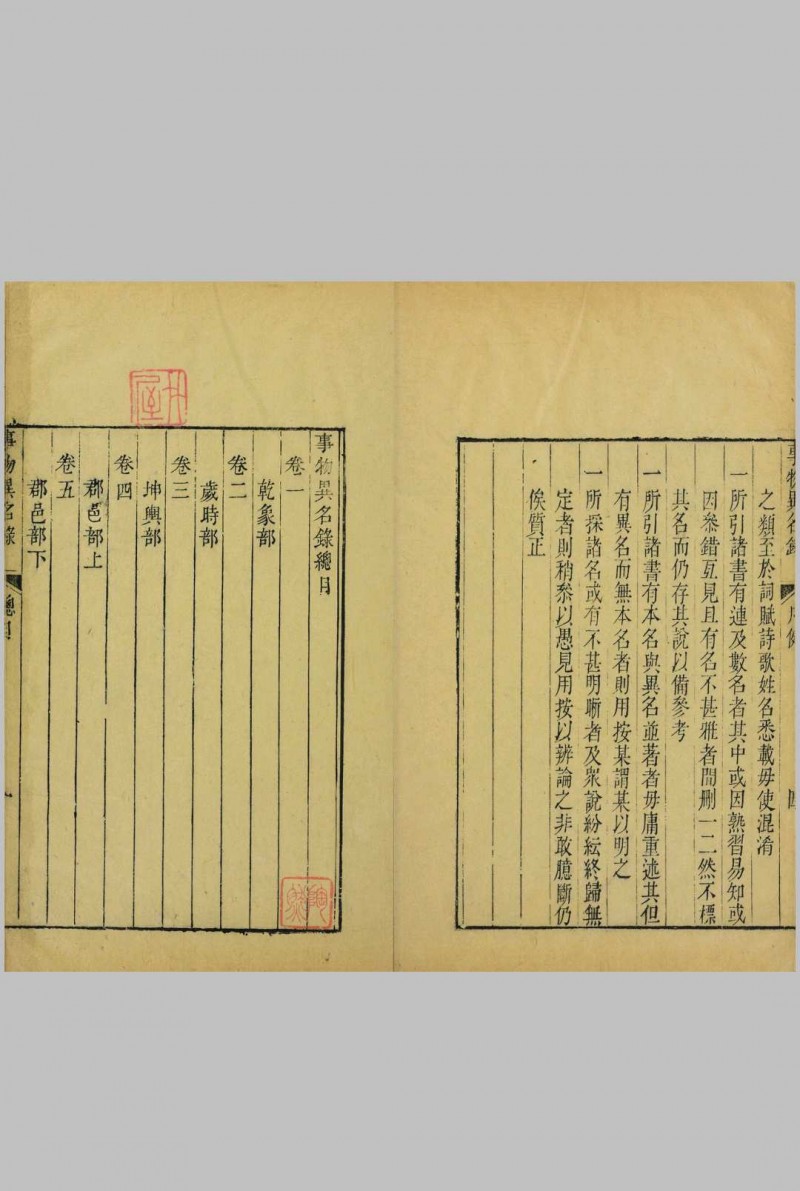 事物異名錄
四
之類至於詞賦詩歌姓名悉載毋使混淆
一所引諸書有連及數名者其中或因熟習易知或
因叅錯互見且有名不甚雅者間刪一二然不標
其名而仍存其說以備參考
一所引諸書有本名與異名並著者毋庸重述其但
有異名而無本名者則用按某謂某以明之
一所採諸名或有不甚明晰者及眾說紛紜終歸無
定者則稍叅以愚見用按以辨論之非敢臆斷仍
俟質正
事物異名錄總目
卷一
乾象部
卷二
歲時部
卷三
坤輿部
卷四
郡邑部上
卷五
郡邑部下
事物異名錄
總目